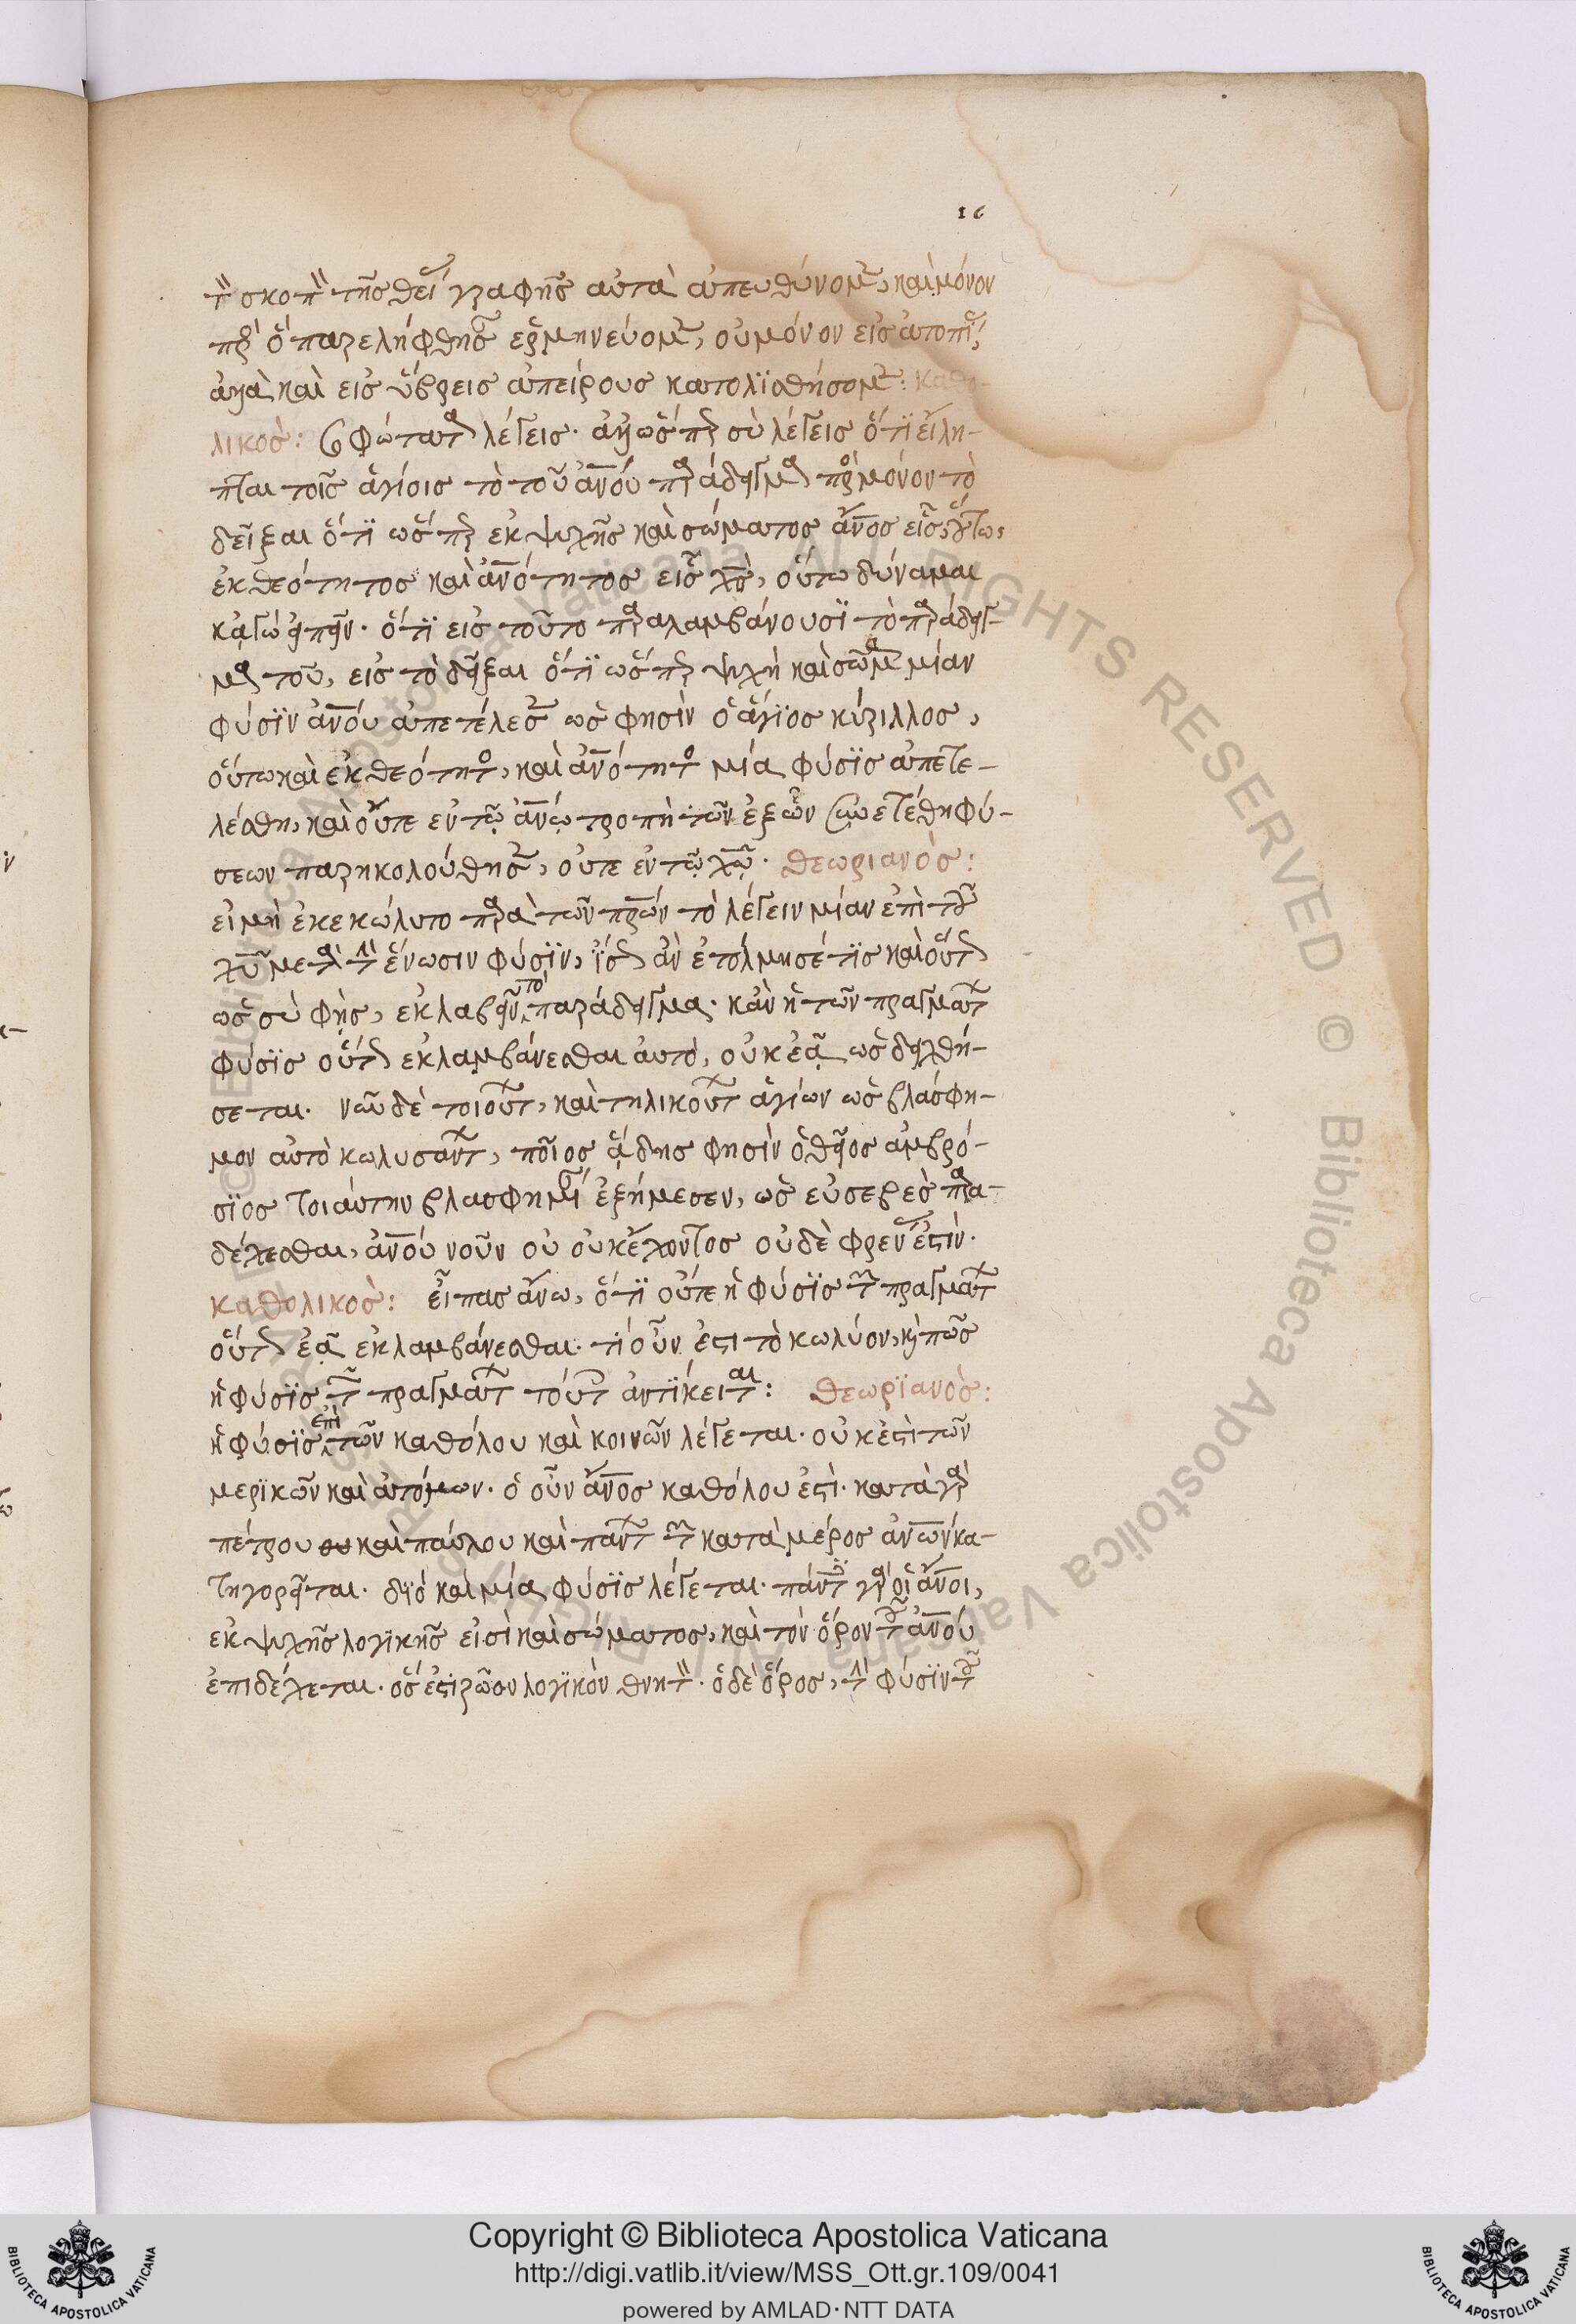 16
τὸν σκοπὸν τῆς θείας γραφῆς αὐτὰ ἀπευθύνομεν, καὶ μόνον
πρὸς ὃ παρελήφθησαν ἑρμηνεύομεν, οὐ μόνον εἰς ἀτοπίας,
ἀλλὰ καὶ εἰς ὕβρεις ἀπείρους κατολϊσθήσομεν: καθο-
λικὸς: σοφώτατα λέγεις. ἀλλ' ὥσπερ σὺ λέγεις ὅτϊ εἴλη-
πται τοῖς ἁγίοις τὸ τοῦ ἀνοῦ παράδειγμα πρὸς μόνον τὸ
δεῖξαι ὅτϊ ὥσπερ ἐκ ψυχῆς καὶ σώματος ἄνος εἷς, οὕτως
ἐκ θεότητος καὶ ἀνότητος εἷς χς, οὕτω δύναμαι
κᾀγὼ εἰπεῖν. ὅτϊ εἰς τοῦτο παραλαμβάνουσϊ τὸ παράδειγ-
μα τοῦ, εἰς τὸ δεῖξαι ὅτϊ ὥσπερ ψυχὴ καὶ σῶμα μίαν
φύσϊν ἀνοῦ ἀπετέλεσαν ὥς φησὶν ὁ ἅγϊος κύριλλος,
οὕτω καὶ ἐκ θεότητος, καὶ ἀνότητος μία φύσϊς ἀπετε-
λέσθη, καὶ οὔτε ἐν τῷ ἀνῳ τροπὴ τῶν ἐξ ὧν συνετέθη φύ-
σεων παρηκολούθησεν, οὔτε ἐν τῷ χῳ. θεωριανὸς:
εἰ μὴ ἐκεκώλυτο παρὰ τῶν πρων τὸ λέγειν μίαν ἐπὶ τοῦ
χυ μετὰ τὴν ἕνωσιν φύσϊν, ἴσως ἂν ἐτόλμησέ τϊς καὶ οὕτως
ὡς σὺ φῂς, ἐκλαβεῖν τὸ παράδειγμα. κἂν ἡ τῶν πραγμάτων
φύσϊς οὕτως ἐκλαμβάνεσθαι αὐτὸ, οὐκ ἐᾷ ὡς δειχθή-
σεται. νῦν δὲ τοιούτων, καὶ τηλικούτων ἁγίων ὡς βλάσφη-
μον αὐτὸ κωλυσάντων, ποῖος ᾅδης φησὶν ὁ θεῖος ἀμβρό-
σϊος τοιαύτην βλασφημίαν ἐξήμεσεν, ὡς εὐσεβὲς παρα-
δέχεσθαι, ἀνοῦ νοῦν οὐ οὐκ ἔχοντος οὐδὲ φρενῶν ἐστίν.
καθολικὸς: εἶπας ἄνω, ὅτϊ οὔτε ἡ φύσϊς τῶν πραγμάτων
οὕτως ἐᾷ ἐκλαμβάνεσθαι. τί οὖν ἐστι τὸ κωλύον, καὶ πῶς
ἡ φύσϊς τῶν πραγμάτων τούτων ἀντϊκειται: θεωρϊανὸς:
ἡ φύσϊς ἐπὶ τῶν καθόλου καὶ κοινῶν λέγεται. οὐκ ἐπὶ τῶν
μερϊκῶν καὶ ἀτόμων. ὁ οὖν ἄνος καθόλου ἐστὶ. κατὰ γὰρ
πέτρου καὶ παύλου καὶ πάντων τῶν κατὰ μέρος ἀνων κα-
τηγορεῖται. δϊὸ καὶ μία φύσϊς λέγεται. πάντες γὰρ οἱ ἄνοι,
ἐκ ψυχῆς λογϊκῆς εἰσὶ καὶ σώματος, καὶ τὸν ὅρον τοῦ ἀνοῦ
ἐπιδέχεται. ὅς ἐστϊ ζῶον λογϊκὸν θνητὸν. ὁ δὲ ὅρος, τὴν φύσϊν τοῦ
Copyright © Biblioteca Apostolica Vaticana
http://digi.vatlib.it/view/MSS_Ott.gr.109/0041
powered by AMLAD·NTT DATA